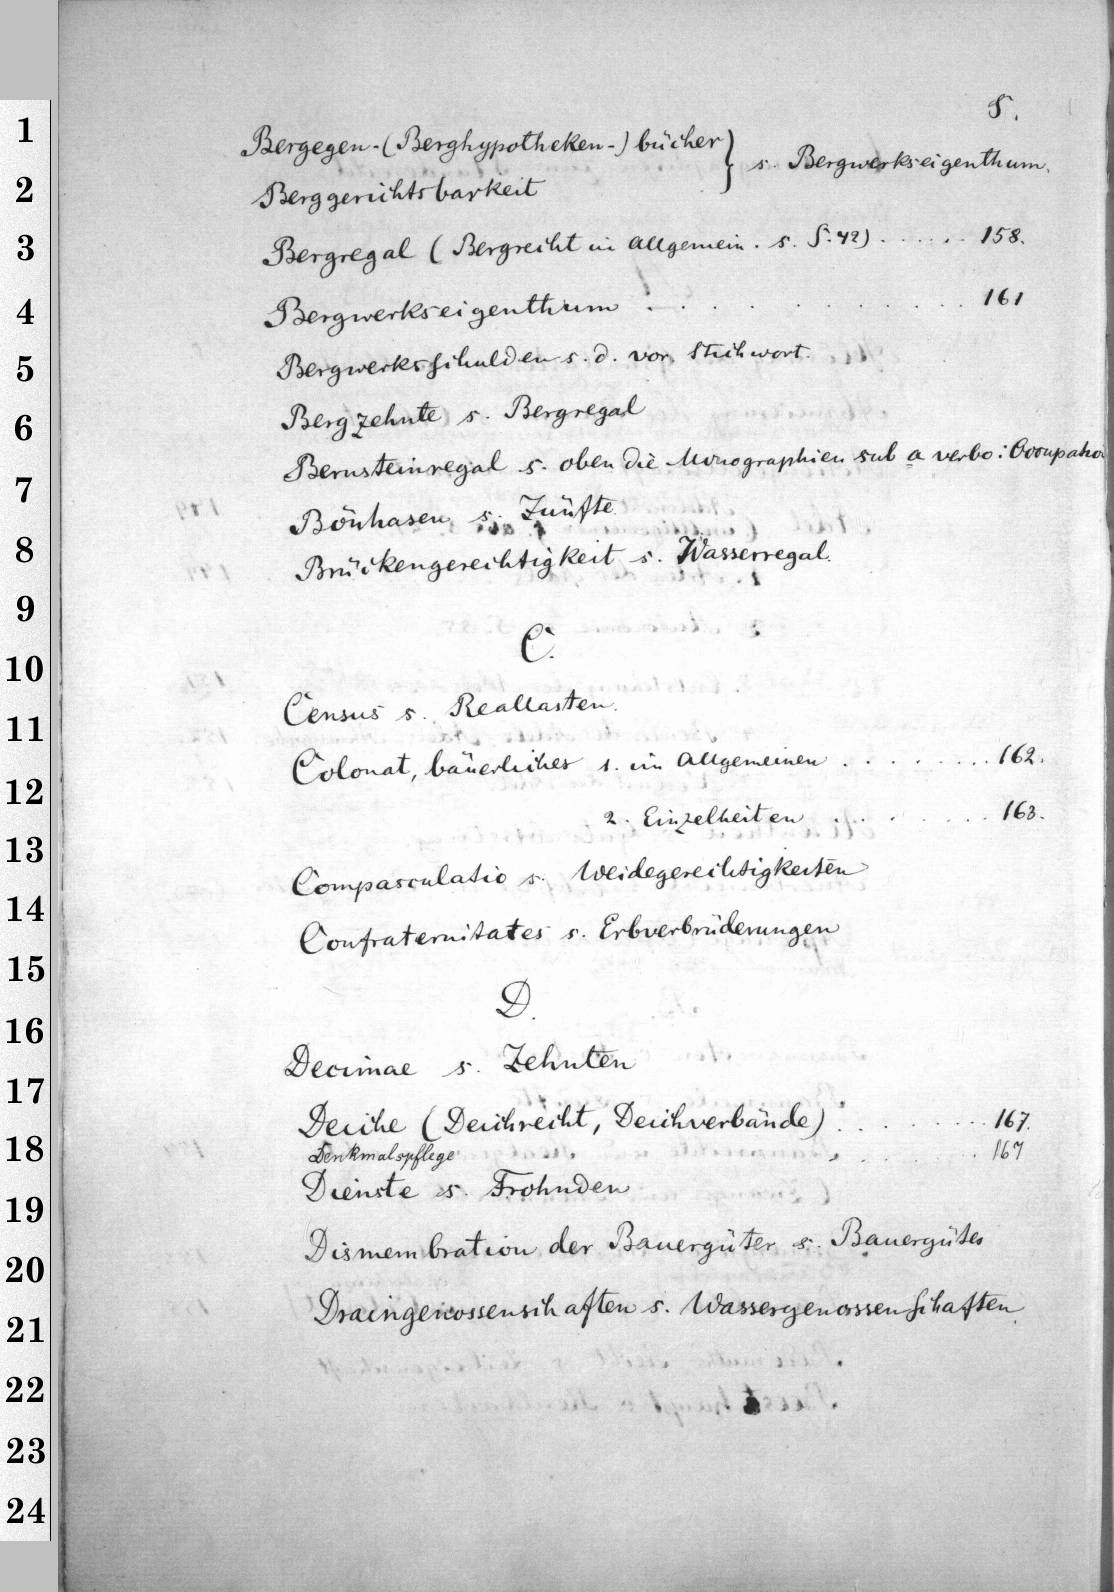 S.
1 Bergegen-(Berghypotheken-) bücher } s. Bergwerkseigenthum.
2 Berggerichtsbarkeit
3 Bergregal (Bergrecht im allgemein. s. S. 42) ...... 158.
4 Bergwerkseigenthum ........... 161
5 Bergwerksschulden s. d. vor. Stichwort.
6 Bergzehnte s. Bergregal
7 Bernsteinregal s. oben die Monographien sub a verbo: Occupatio
8 Bönhasen s. Zünfte
Brückengerechtigkeit s. Wasserregal.
9
10 C.
11 Census s. Reallasten.
12 Colonat, bäuerliches 1. im allgemeinen ......... 162.
13 2. Einzelheiten ....... 163.
14 Compasculatio s. Weidegerechtigkeiten
15 Confraternitates s. Erbverbrüderungen
16 D.
17 Decimae s. Zehnten
18 Deiche (Deichrecht, Deichverbände) ......... 167.
Denkmalspflege ....... 167
19 Dienste s. Frohnden
20 Dismembration der Bauergüter s. Bauergüter
21 Draingenossenschaften s. Wassergenossenschaften.
22
23
24